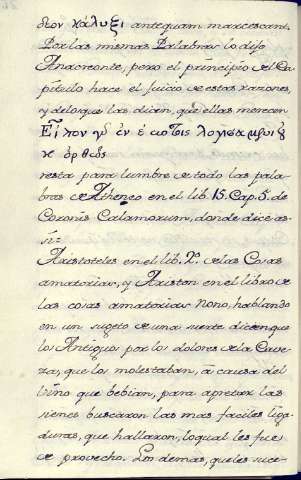 δεον κάλυξι antequam marcescant.
Por las mismas Palabras lo dijo
Anacreonte, pero el principio del Ca-
pitulo hace el juicio de estas razones,
y de los que las dicen, que ellas merecen
λογισαμενου
ορθῶς
resta para lumbre de todo las pala-
bras de Atheneo en el lib. 15. Cap. 5. de
Coronis Calamorum, donde dice as-
si:
Aristoteles en el lib. 2º de las Cosas
amatorias, y Ariston en el libro de
las cosas amatorias Nono, hablando
en un sugeto de una suerte dicen que
los Antiguos por los dolores de la Cave-
za, que los molestaban, à causa del
vino que bebian, para apretar las
sienes buscaron las mas faciles liga-
duras, que hallaron, lo qual les fue
de provecho. Los demas, que les suce-